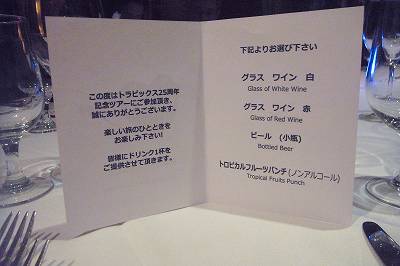 この度はトラピックス25周年
記念ツアーにご参加頂き、
誠にありがとうございます。
楽しい旅のひとときを
お楽しみ下さい!
皆様にドリンク1杯を
ご提供させて頂きます。
下記よりお選び下さい
グラス ワイン 白
Glass of White Wine
グラス ワイン 赤
Glass of Red Wine
ビール (小瓶)
Bottled Beer
トロピカルフルーツパンチ(ノンアルコール)
Tropical Fruits Punch